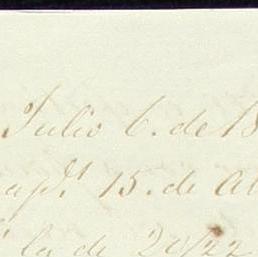 Julio 6. de 18
cap.t 15. de Ab
la de 20/22